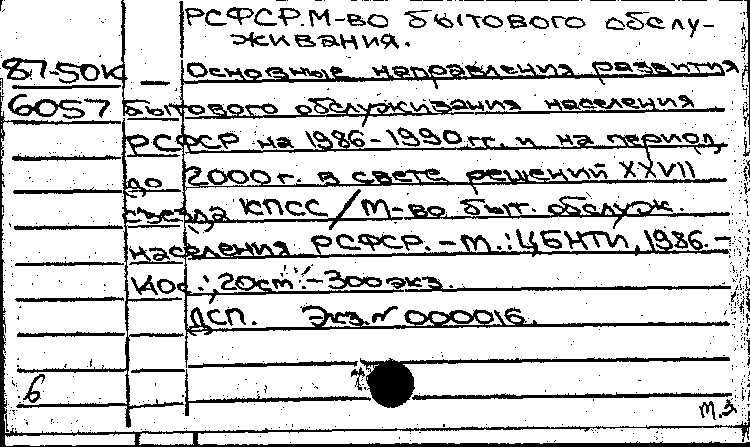 РСФСР. М-во бытового обслу-
живания.
87-50к — Основные направления развития
6057 бытового обслуживания населения
РСФСР на 1986-1990 гг. и на период
до 2000 г. в свете решений XXVII
съезда КПСС / М-во быт. обслуж.
населения РСФСР. – М.: ЦБНТИ, 1986. –
140с.; 20см. – 300 экз.
ДСП. Экз. № 000016.
6